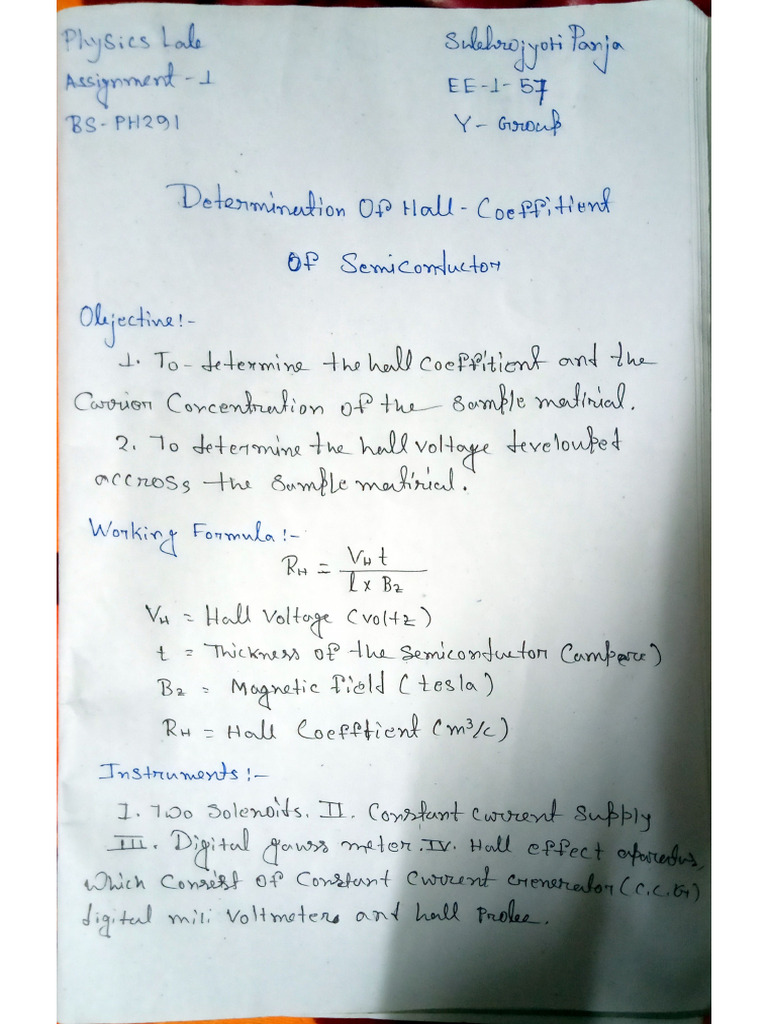 Physics Lab
Sulehrojyoti Panja
Assignment - 1
EE-1-57
BS-PH291
Y-Group
Determination Of Hall-Coeffitient
Of Semiconductor
Objective:-
1. To-determine the hall coeffitient and the
Carrior Concentration of the sample matirial.
2. To determine the hall voltage develouped
accross the sample matirial.
Working Formula:-
RH = VH t / l x Bz
VH = Hall Voltage (voltz)
t = Thickness of the semiconductor (ampere)
Bz = Magnetic field (tesla)
RH = Hall Coefftient (m³/c)
Instruments:-
I. Two Solenoids. II. Constant current supply
III. Digital gauss meter. IV. Hall effect aparatus,
which consist of constant current generator (C.C.G)
digital mili voltmeter and hall probe.